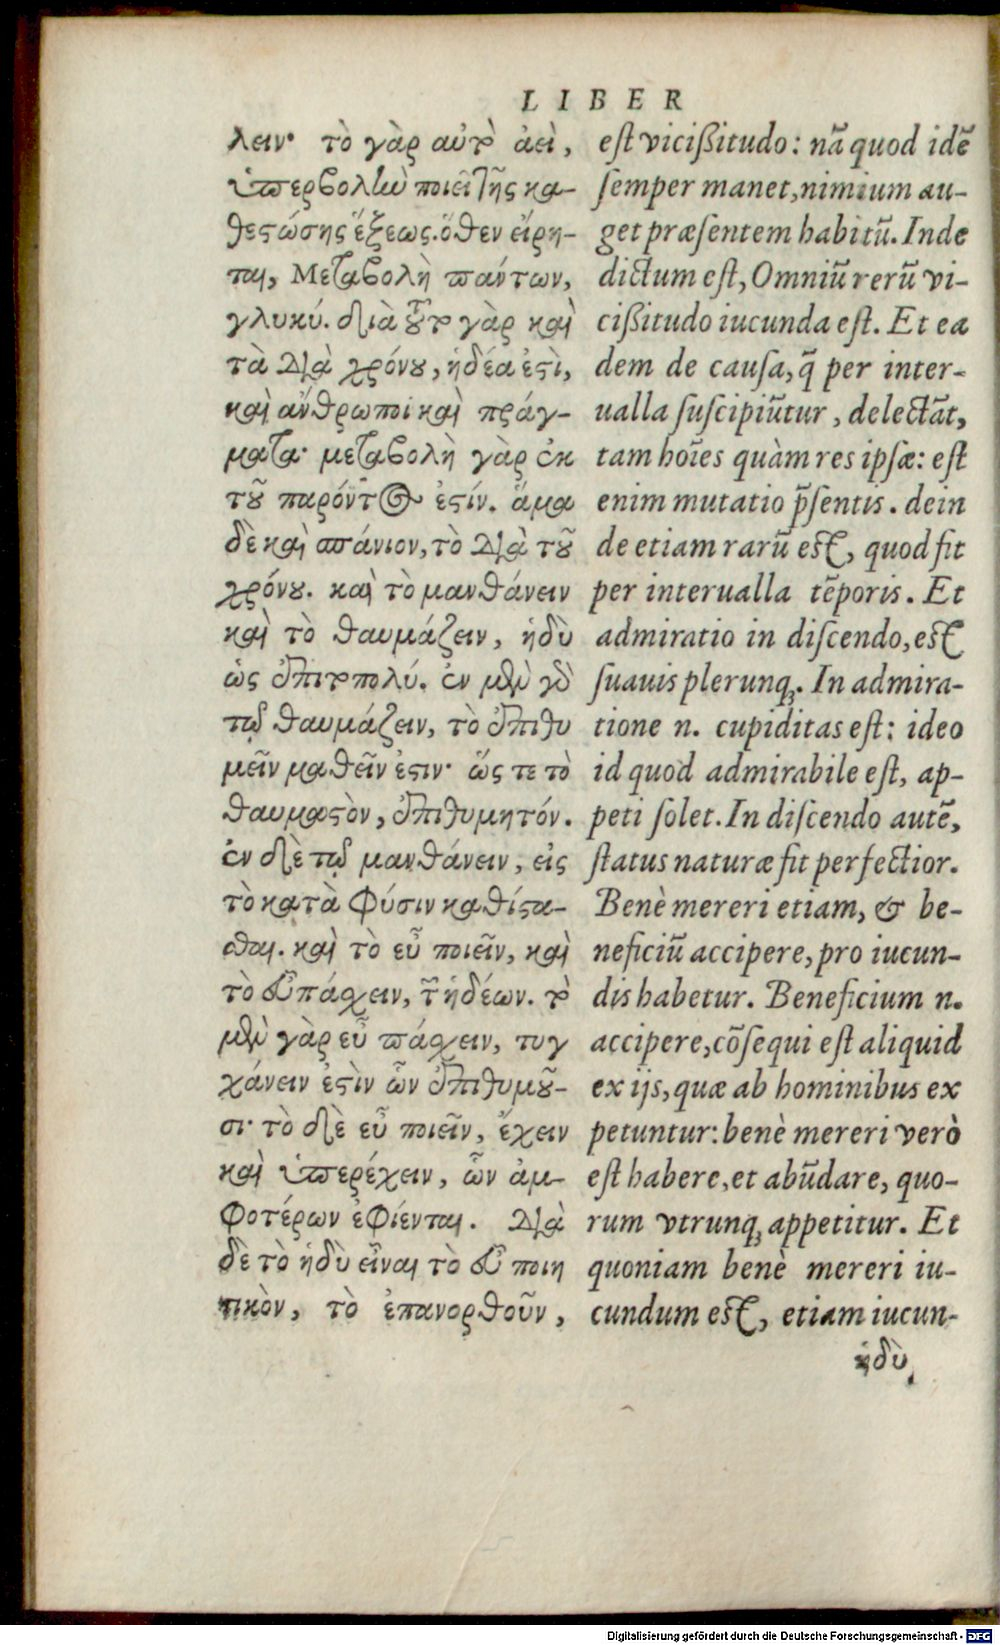 LIBER
λειν· τὸ γὰρ αὐτὸ ἀεὶ,
ὑπερβολὴν ποιεῖ τῆς κα-
θεστώσης ἕξεως. ὅθεν εἴρη-
ται, Μεταβολὴ πάντων,
γλυκύ. διὰ τοῦτο γὰρ καὶ
τὰ διὰ χρόνου, ἡδέα ἐστὶ,
καὶ ἄνθρωποι καὶ πράγ-
ματα· μεταβολὴ γὰρ ἐκ
τοῦ παρόντος ἐστίν. ἅμα
δὲ καὶ σπάνιον, τὸ διὰ τοῦ
χρόνου. καὶ τὸ μανθάνειν
καὶ τὸ θαυμάζειν, ἡδὺ
ὡς ἐπιτοπολύ. ἐν μὲν γὸ
τῷ θαυμάζειν, τὸ ἐπιθυ
μεῖν μαθεῖν ἐστιν· ὥς τε τὸ
θαυμαστὸν, ἐπιθυμητόν.
ἐν δὲ τῷ μανθάνειν, εἰς
τὸ κατὰ φύσιν καθίστα-
σθαι. καὶ τὸ εὖ ποιεῖν, καὶ
τὸ εὖ πάσχειν, τῶν ἡδέων. τὸ
μὲν γὰρ εὖ πάσχειν, τυγ
χάνειν ἐστὶν ὧν ἐπιθυμοῦ-
σι· τὸ δὲ εὖ ποιεῖν, ἔχειν
καὶ ὑπερέχειν, ὧν ἀμ-
φοτέρων ἐφίενται. διὰ
δὲ τὸ ἡδὺ εἶναι τὸ εὖ ποιη
τικὸν, τὸ ἐπανορθοῦν,
est vicißitudo: nã quod idẽ
semper manet, nimium au-
get præsentem habitũ. Inde
dictum est, Omniũ rerũ vi-
cißitudo iucunda est. Et ea
dem de causa, q̃ per inter-
ualla suscipiũtur, delectãt,
tam hoĩes quàm res ipsæ: est
enim mutatio p̃sentis. dein
de etiam rarũ est, quod fit
per interualla tẽporis. Et
admiratio in discendo, est
suauis plerunq;. In admira-
tione n. cupiditas est: ideo
id quod admirabile est, ap-
peti solet. In discendo autẽ,
status naturæ fit perfectior.
Benè mereri etiam, & be-
neficiũ accipere, pro iucun-
dis habetur. Beneficium n.
accipere, cõsequi est aliquid
ex ijs, quæ ab hominibus ex
petuntur: benè mereri verò
est habere, et abũdare, quo-
rum vtrunq; appetitur. Et
quoniam benè mereri iu-
cundum est, etiam iucun-
ἡδὺ
Digitalisierung gefördert durch die Deutsche Forschungsgemeinschaft - DFG